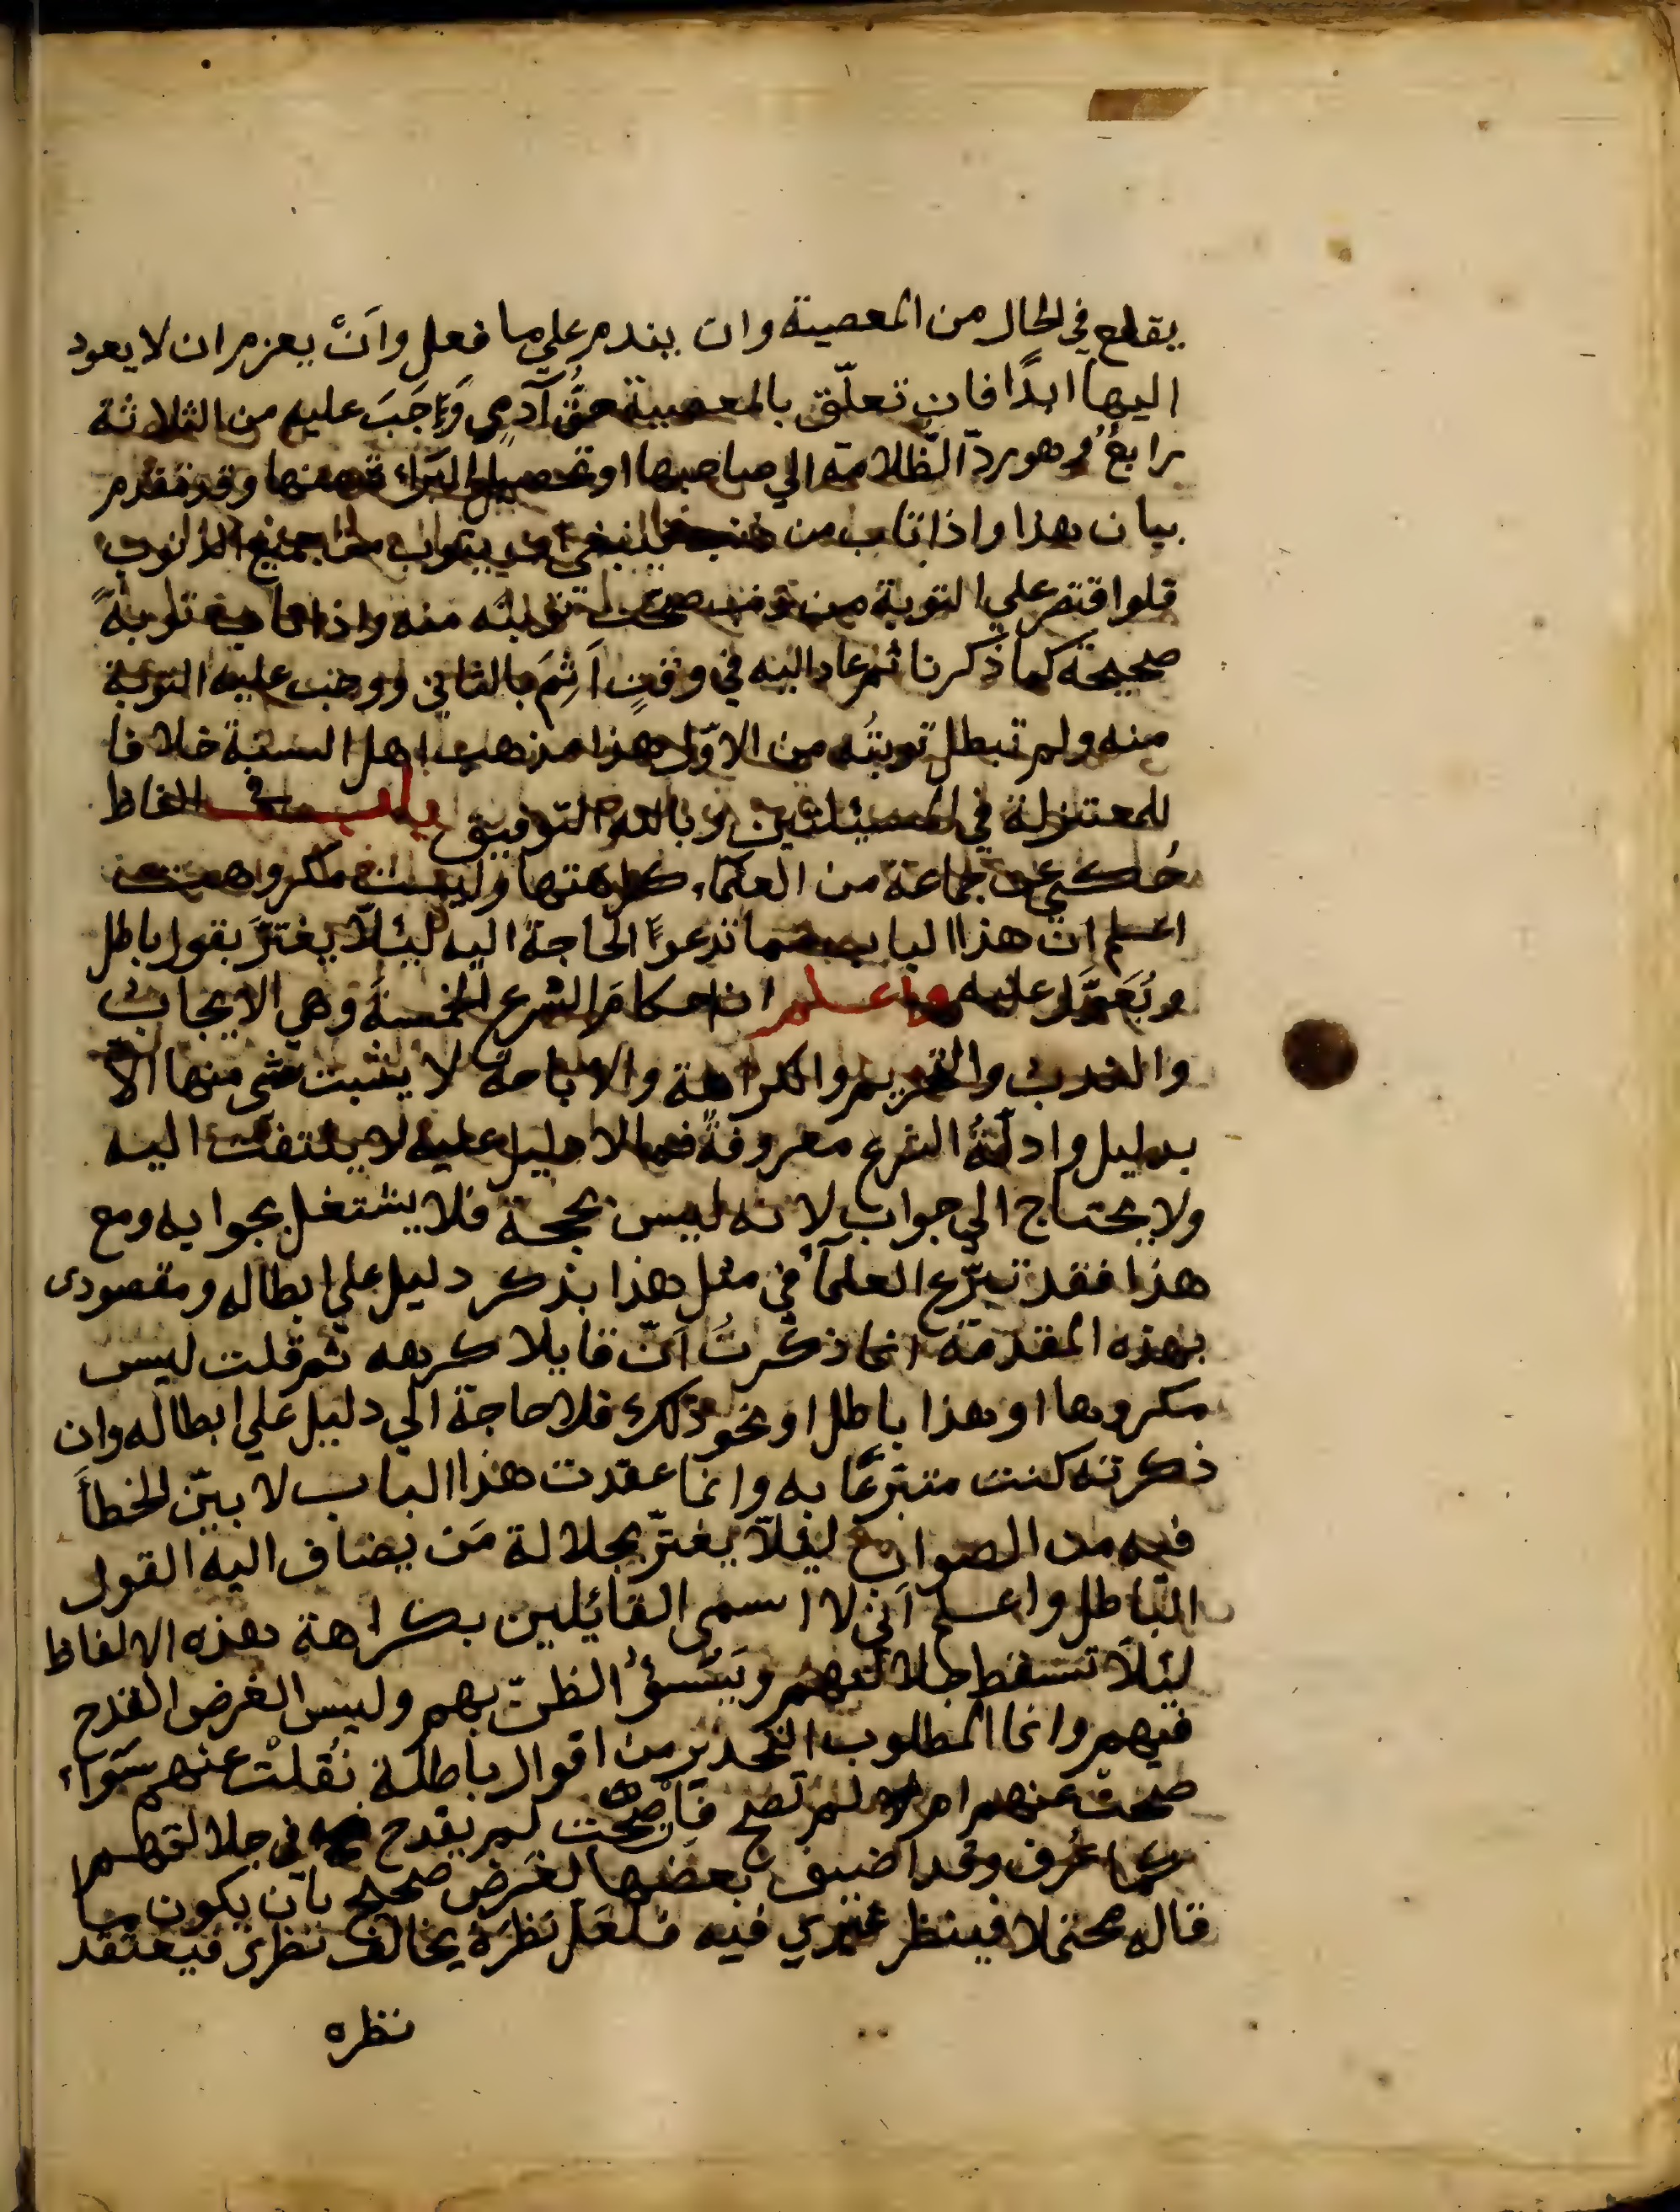 يقلع في الحال من المعصية وان يندم على ما فعل وأنْ يعزم ان لا يعود
اليها ابدًا فان تعلّق بالمعصية حقُّ آدمي وَجَبَ عليه من الثلاثة
رابعٌ وهو ردّ الظّلامة الي صاحبها او تحصيل البراءة منها وقد تقدم
بيان هذا واذا تاب من ذنب فينبغي ان يتوب من جميع الذنوب
فلو اقتصر علي التوبة من ذنب صحت توبته منه واذا تاب توبةً
صحيحة كما ذكرنا ثم عاد اليه في وقتٍ اَثِمَ بالثاني ووجب عليه التوبة
منه ولم تبطل توبتُه من الاوّل هذا مذهب اهل السنة خلافا
للمعتزلة في المسيلتين وبالله التوفيق باب في الفاظ
حُكي عن جماعة من العلماء كراهتها وليست مكروهة
اعلم ان هذا الباب مما تدعوا الحاجة اليه ليئلّا يغترَّ بقول باطل
ويُعَوَّل عليه واعلم ان احكامَ الشرع الخمسةَ وهي الايجاب
والندب والتحريم والكراهة والاباحة لا يثبت شي منها الا
بدليل وادلّةُ الشرع معروفةٌ فما لا دليل عليه لا يلتفت اليه
ولا يحتاج الي جواب لانه ليس بحجة فلا يشتغل بجوابه ومع
هذا فقد تبرّع العلماءُ في مثل هذا بذكر دليل علي ابطاله ومقصودى
بهذه المقدمة انما ذكرتُ اَنّ قايلا كرهه ثم قلت ليس
مكروها او هذا باطل او نحو ذلك فلا حاجة الي دليل علي ابطاله وان
ذكرته كنت متبرّعًا به وانما عقدت هذا الباب لابيّن الخطأَ
فيه من الصواب ليئلّا يغترّ بجلالة مَن يضاف اليه القول
الباطل واعلم اَنّي لا اسمى القائيلين بكراهة هذه الالفاظ
ليئلّا تسقط جلالتهم ويُسئُ الظنّ بهم وليس الغرض القدح
فيهم وانما المطلوب التحذير من اقوال باطلة نُقلتْ عنهم سَوَآءٌ
صحت عنهم ام لم تصح فان صحّت لم يقدح في جلالتهم
كما عُرف وقد اضيف بعضها لغَرض صحيح بأن يكون ما
قاله محتملا فينظر غيري فيه فلعَلّ نظَرَهُ يخالف نظرى فيعتقد
نظره